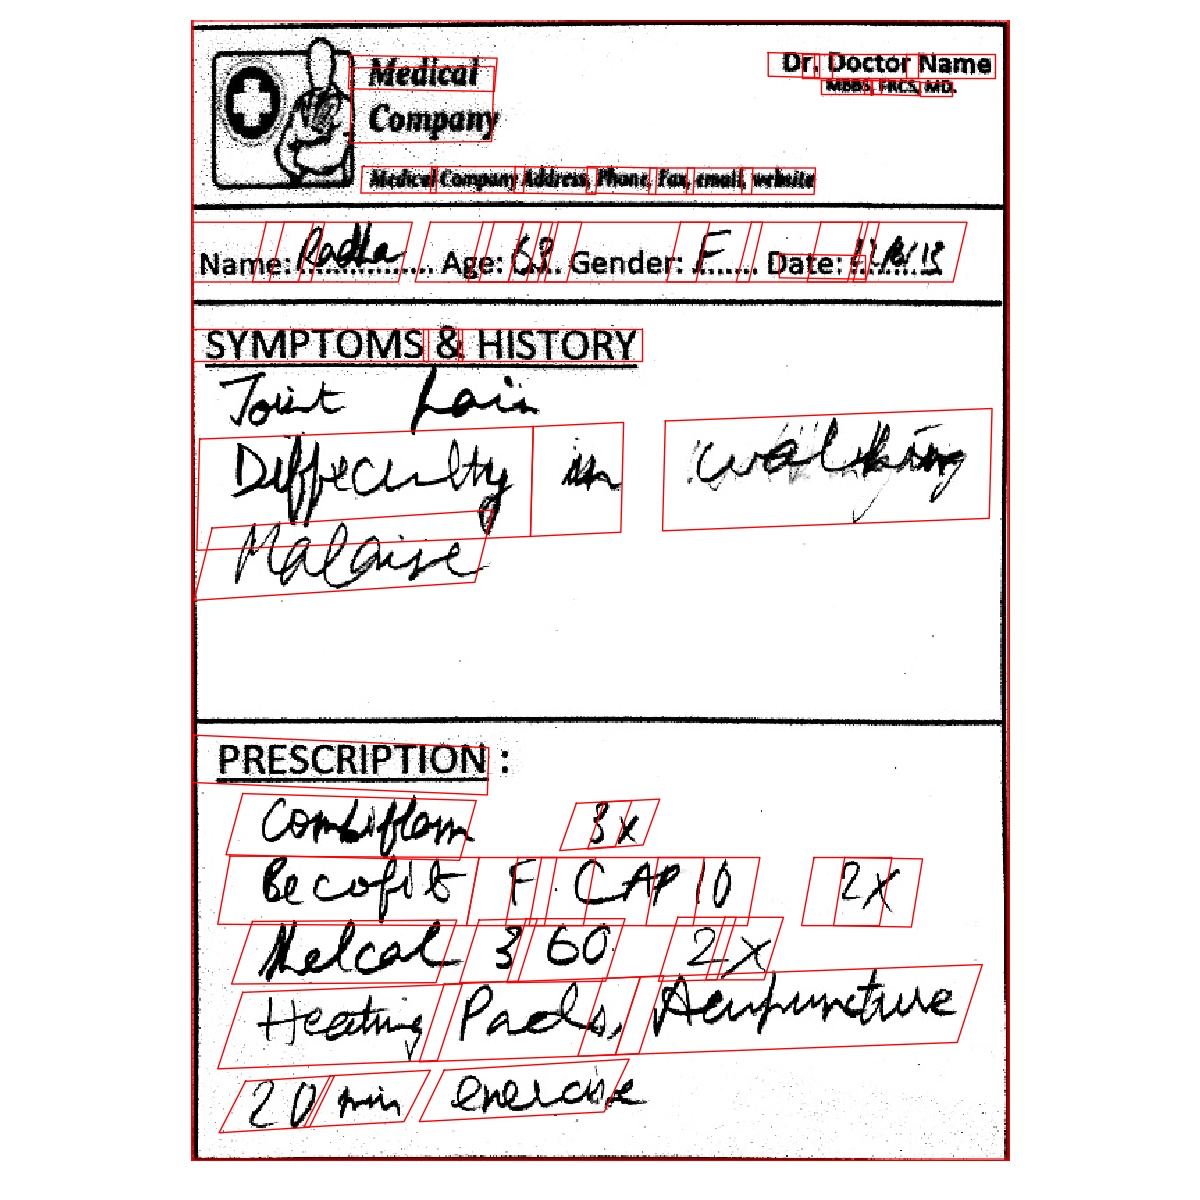 Medical
Company
Dr. Doctor Name
MBBS, FRCS, MD.
Medical Company Address, Phone, Fax, email, website
Name: Radha Age: Gender: F Date:
SYMPTOMS & HISTORY
Joint Pain
Diffeculty in walking
Malaise
PRESCRIPTION :
Combiflam 3x
Becofit F. CAP 10 2x
Melcal 360 2x
Heating Pads, Acupuncture
20 min exercise